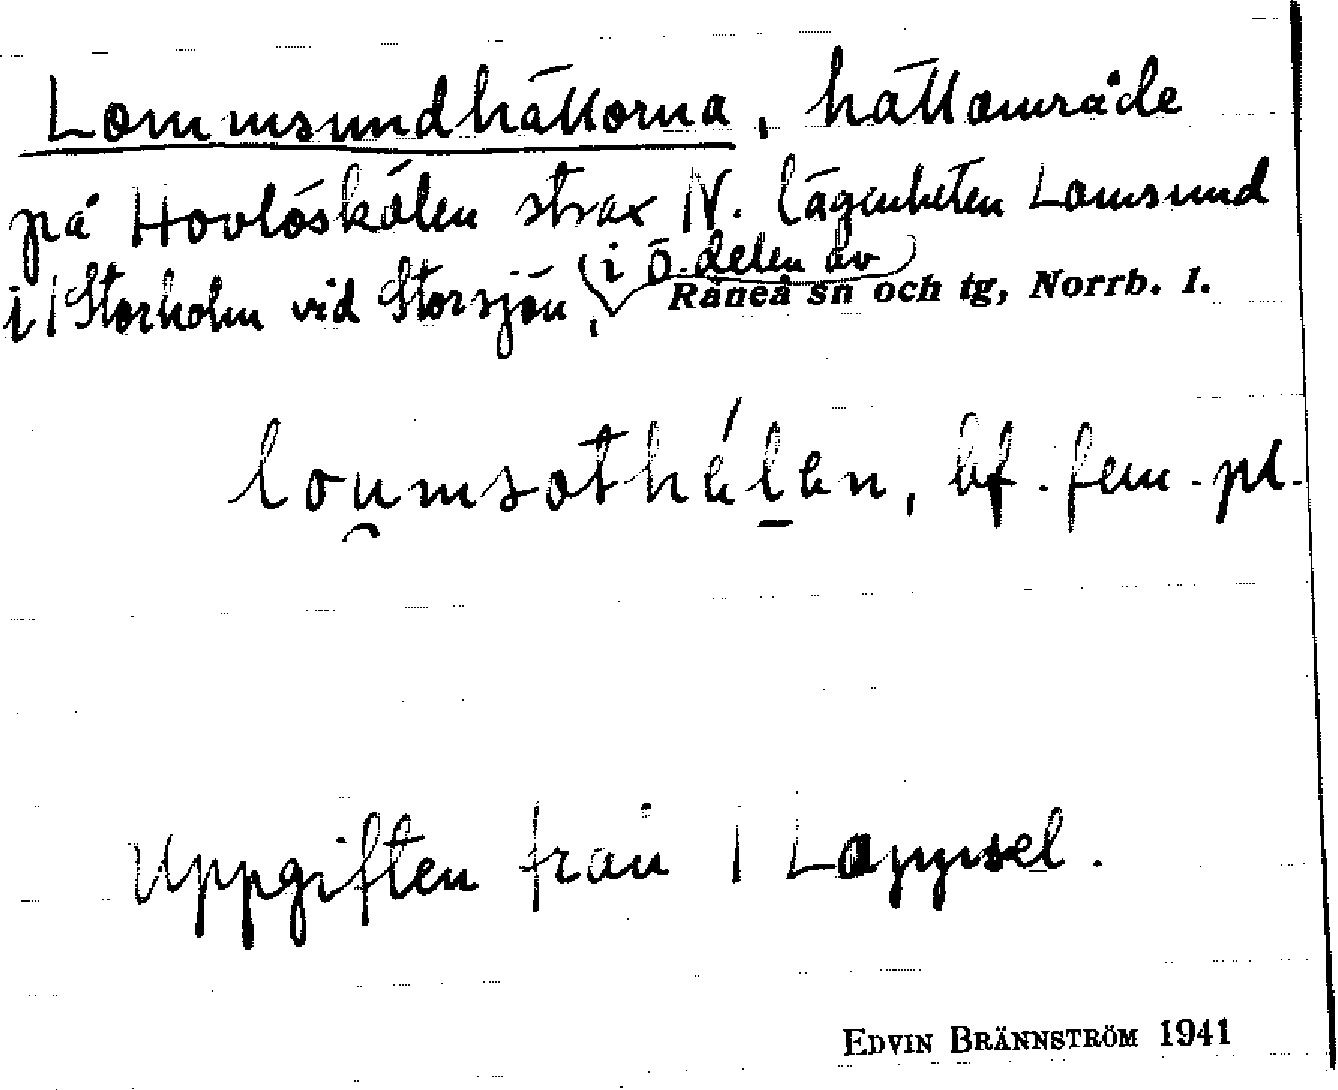 Lommsundhällorna, hällområde
på Hovlöskölen strax N. lägenheten Lomsund
i | Storholm vid Storsjön, (i ö. delen av)
Råneå sn och tg, Norrb. l.
lou̯msothél̠en, bf. fem. pl.
Uppgiften från | Lappsel.
EDVIN BRÄNNSTRÖM 1941